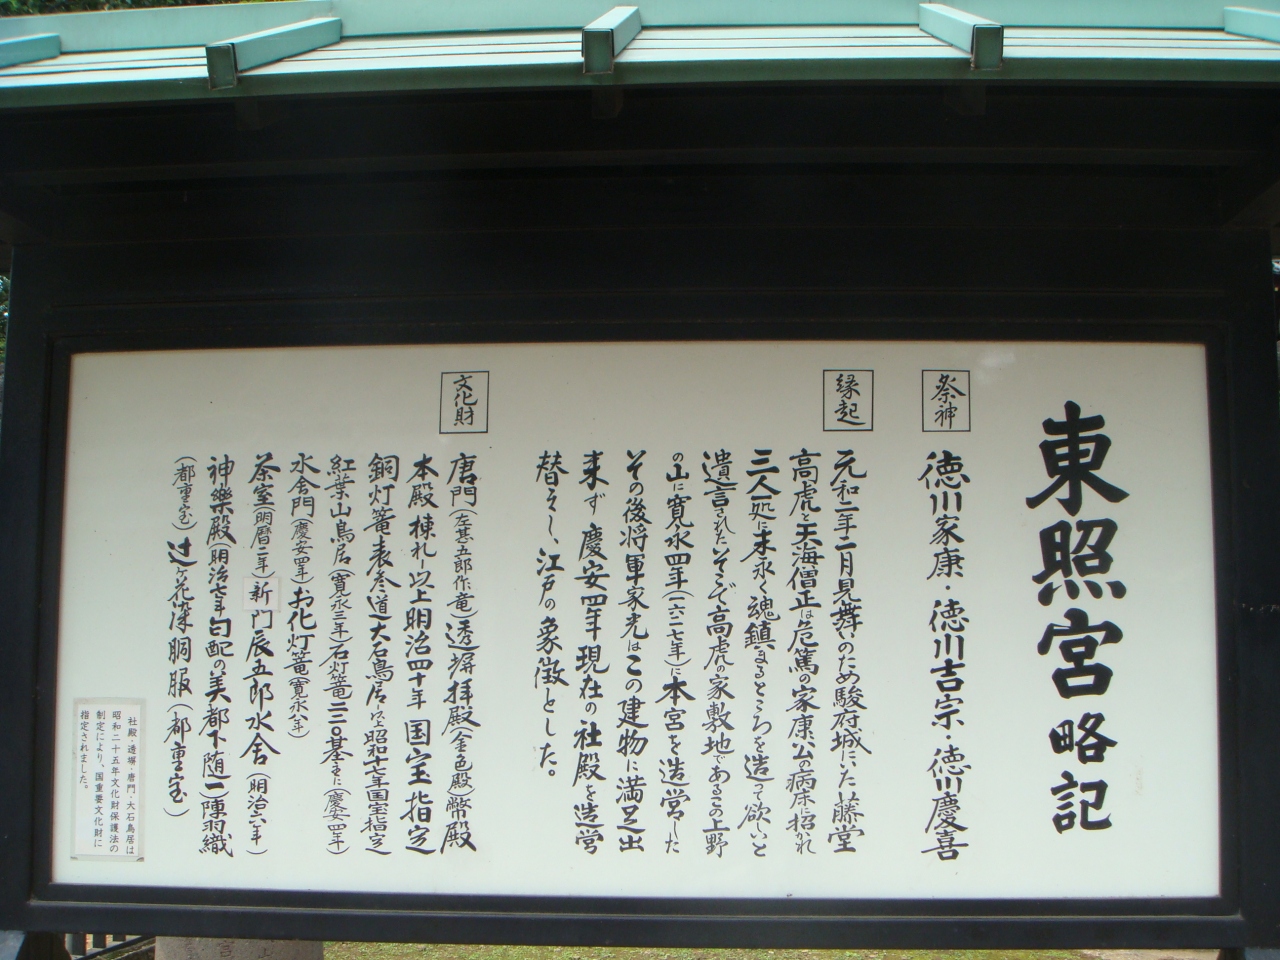 東照宮略記
祭神
徳川家康・徳川吉宗・徳川慶喜
縁起
元和二年二月見舞いのため駿府城にいた藤堂
高虎と天海僧正は危篤の家康公の病床に招かれ
三人一処に末永く魂鎮まるところを造って欲しいと
遺言されたそこで高虎の家敷地であるこの上野
の山に寛永四年(一六二七年)に本宮を造営した
その後将軍家光はこの建物に満足出
来ず慶安四年現在の社殿を造営
替えし、江戸の象徴とした。
文化財
唐門(左甚五郎作竜)透塀拝殿(金色殿)幣殿
本殿棟札以上明治四十年国宝指定
銅灯篭表参道大石鳥居以上昭和十七年国宝指定
紅葉山鳥居(寛永三年)石灯篭二二〇基主に(慶安四年)
水舎門(慶安四年)お化灯篭(寛永八年)
茶室(明暦二年)新門辰五郎水舎(明治六年)
神樂殿(明治七年)勾配の美都下随一)陳羽織
(都重宝)辻ヶ花染胴服(都重宝)
社殿・透塀・唐門・大石鳥居は
昭和二十五年文化財保護法の
制定により、国重要文化財に
指定されました。